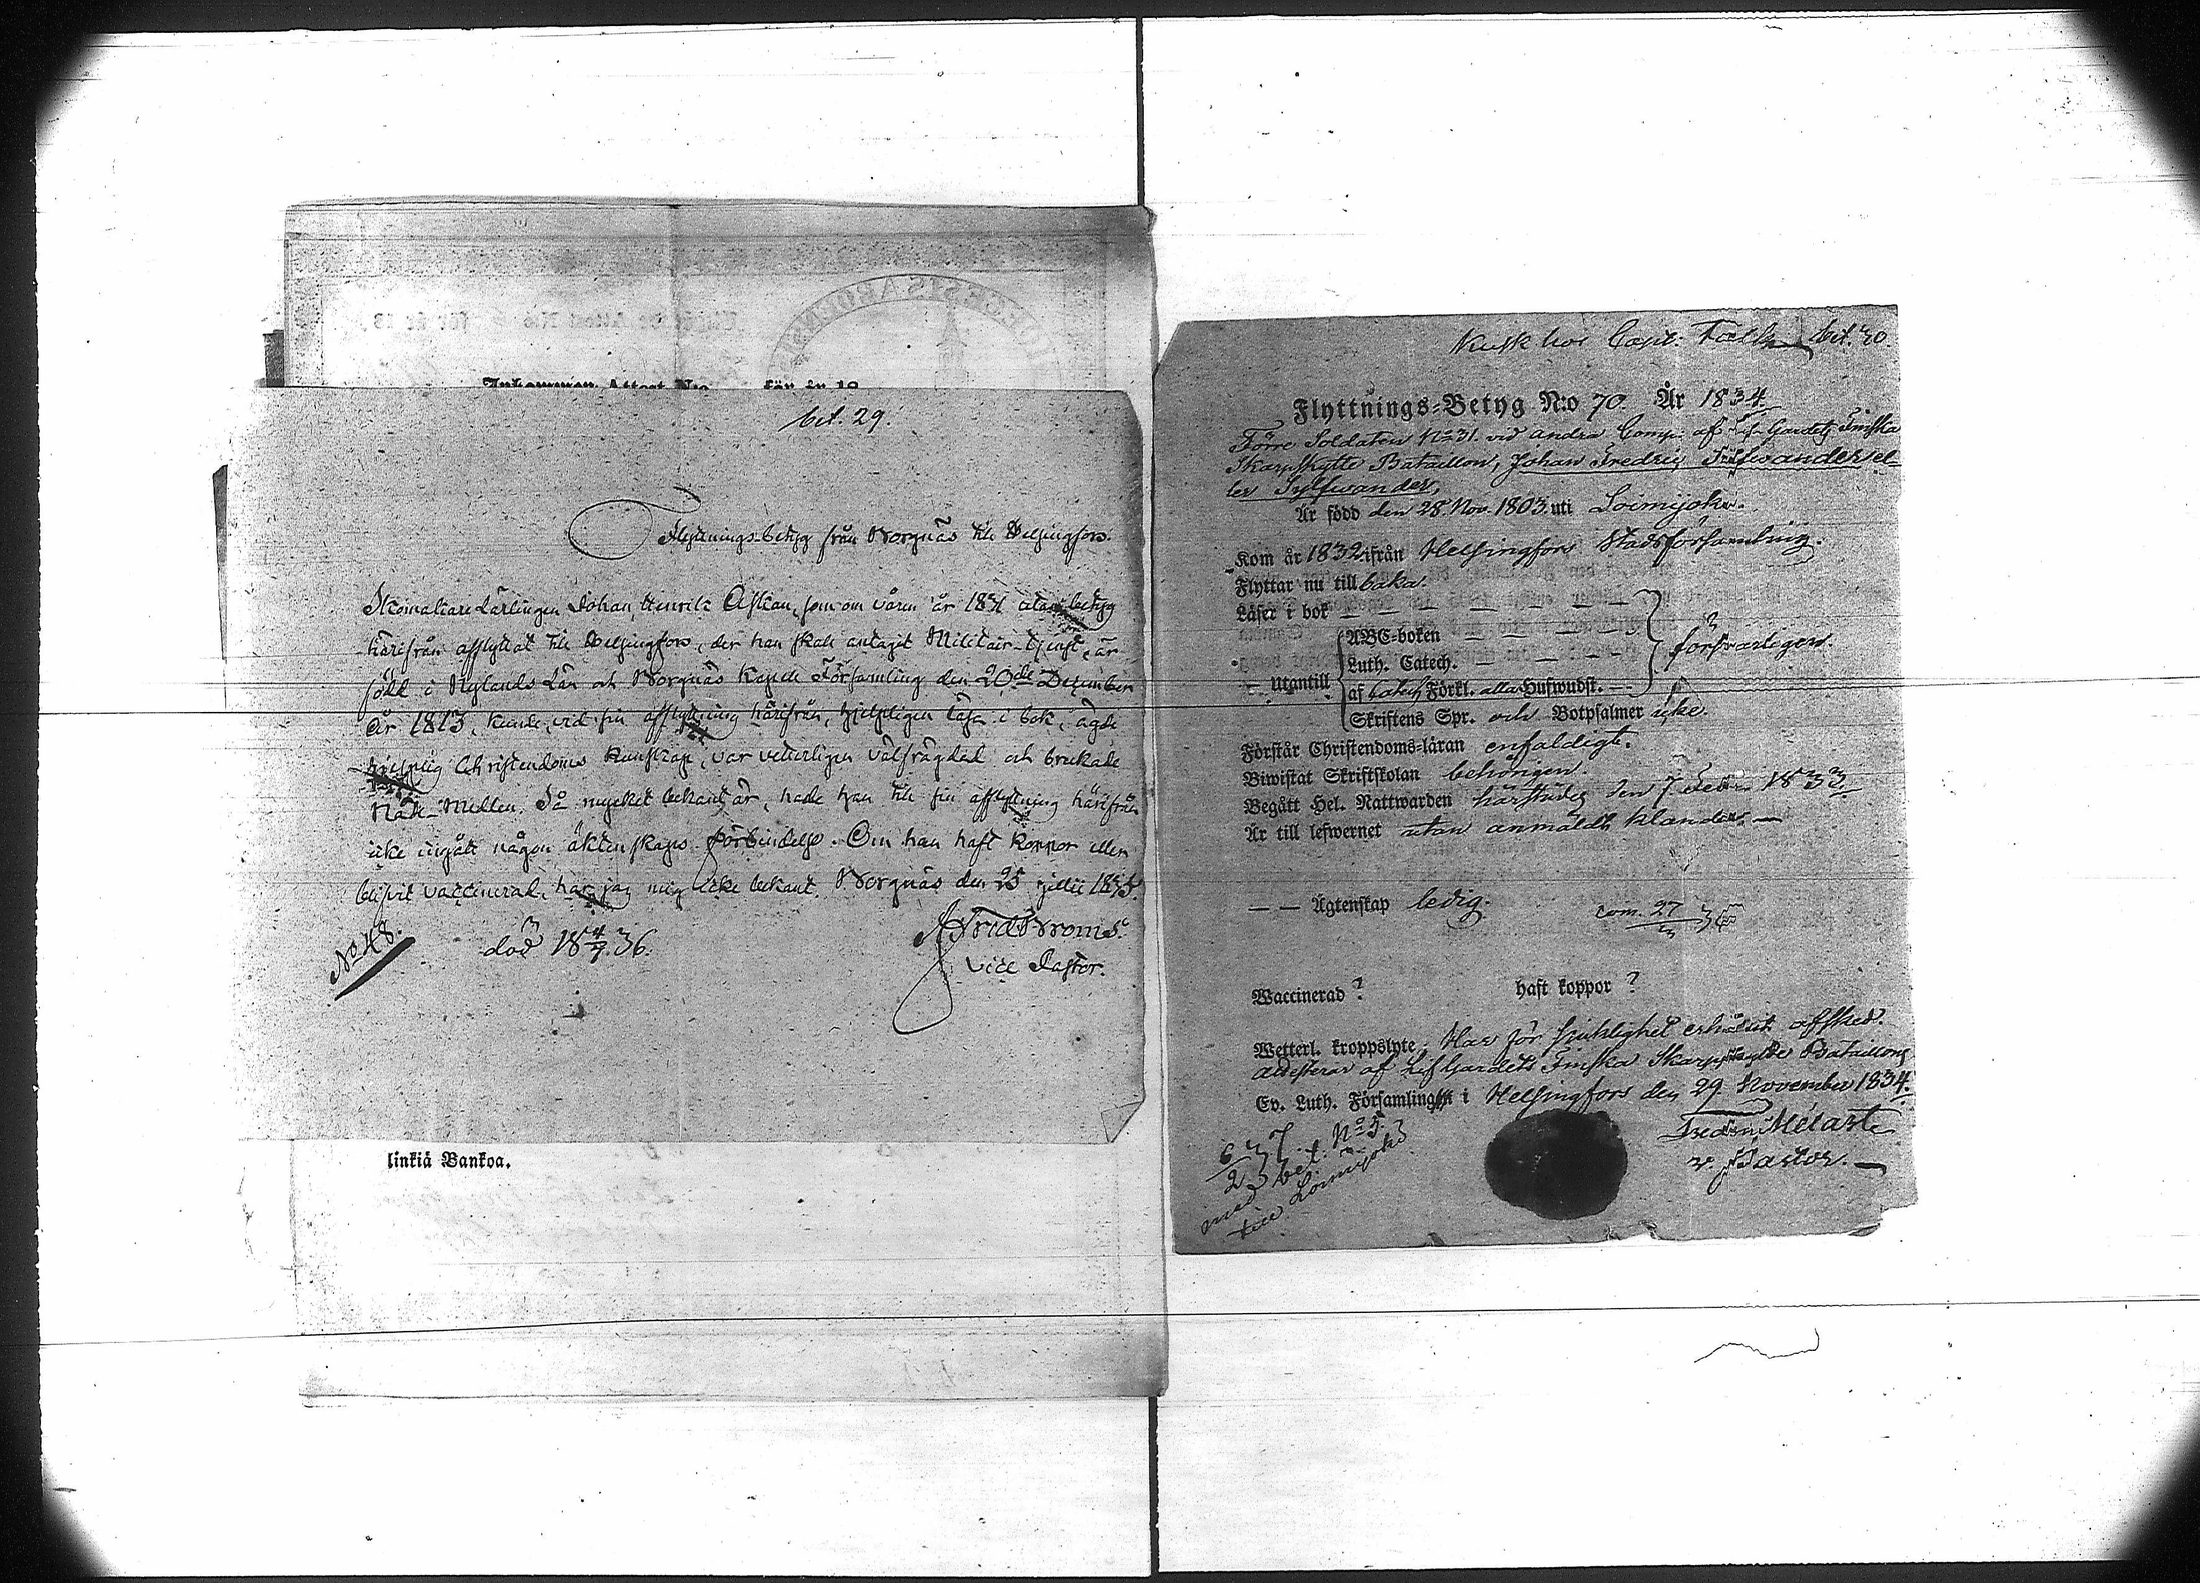 Inkommen Attest N:o för år 18
bet. 29.
Flyttnings-betyg från Borgnäs till Helsingfors.
Skomakare Lärlingen Johan Henrik Askan, som om våren år 1831 utan betyg
härifrån afflyttat till Helsingfors, der han skall antagit Militair-tjenst, är
född i Nylands Län och Borgnäs Kapell Församling den 20de December
År 1813, kunde, vid sin afflyttning härifrån, hjelpligen läsa i bok, ägde
hjelplig Christendoms kunskap, var veterligen välfrägdad och brukade
Nåde-Medlen. Så mycket bekant är, hade han till sin afflyttning härifrån
icke ingått någon äktenskaps förbindelse. Om han haft koppor eller
blifvit vaccinerad, har jag mig icke bekant. Borgnäs den 25 Julii 1835.
Vice Pastor.
No 48.
död 18 4/7 36.
linkiä Bankoa.
Kusk hos Capt. bet. 30.
Flyttnings-Betyg N:o 70. År 1834
Förre Soldaten No 31. vid andra Comp. af Lif-Gardets Finska
Skarpskytte Bataillon, Johan Fredric Silfwander el-
ler Sylfwander,
Är född den 28 Nov. 1803 uti Loimijoki.
Kom år 1832 ifrån Helsingfors Stadsförsamling.
Flyttar nu till baka.
Läser i bok — — — — — —
ABC-boken — — — — —
Luth. Catech. — — — — försvarligen.
— Utantill
af Catech. Förkl. alla Hufwudst. —
Skriftens Spr. och Botpsalmer icke.
Förstår Christendoms-läran enfaldigt.
Biwistat Skriftskolan behörigen.
Begått Hel. Nattwarden härstädes den 7 Febr. 1833.
Är till lefwernet utan anmäldt klander. —
— — Ägtenskap ledig.
com. 27
Waccinerad ? haft koppor ?
Wetterl. kroppslyte. Har för sjuklighet erhållit afsked.
attesterar af Lif Gardets Finska Skarpskytte Bataillons
Ev. Luth. Församling i Helsingfors den 29 November 1834.
v. Pastor. —
bet. No 5
med
till Loimijoki